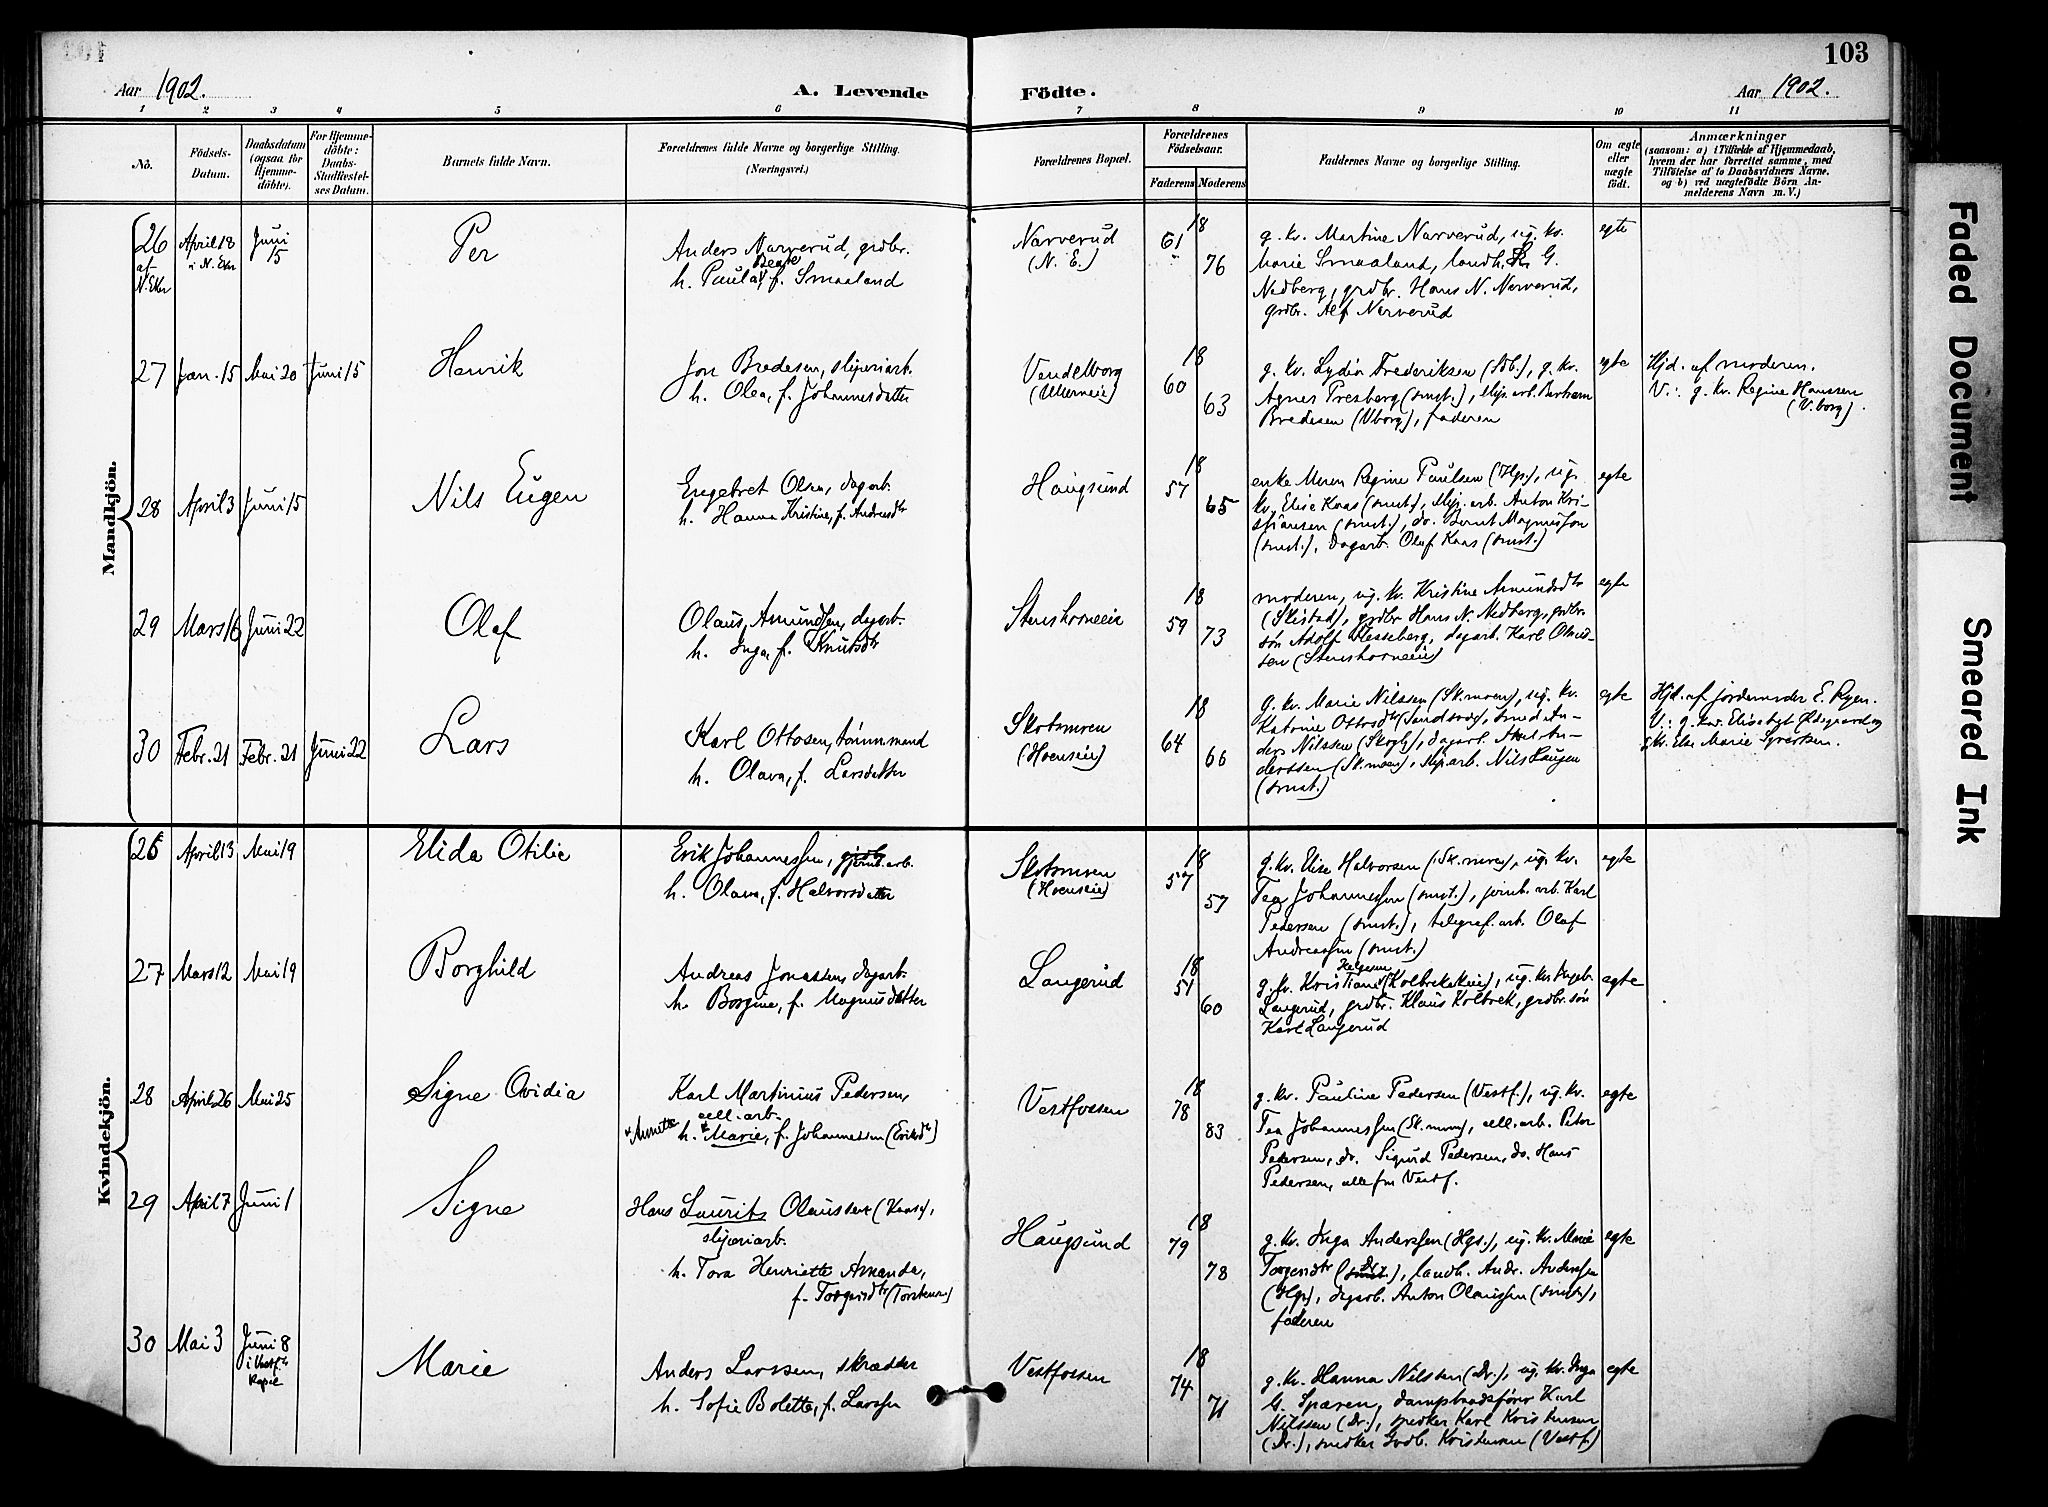 103
Aar 1902.
A. Levende Födte.
Aar 1902.
1 2 3 4 5 6 7 8 9 10 11
No.
Födsels-Datum.
Daabsdatum (ogsaa for Hjemme-döbte).
For Hjemme-döbte: Daabs-Stadfæstel-ses Datum.
Barnets fulde Navn.
Forældrenes fulde Navne og borgerlige Stilling.
(Næringsvei.)
Forældrenes Bopæl.
Forældrenes Födselsaar.
Faderens Moderens
Faddernes Navne og borgerlige Stilling.
Om ægte eller uægte födt.
Anmærkninger
(saasom: a) i Tilfælde af Hjemmedaab,
hvem der har forrettet samme, med
Tilföielse af to Daabsvidners Navne,
og b) ved uægtefödte Börn An-
melderens Navn m. V.)
Mandkjön.
26 af N. Eker
April 18 i N. Eker
Juni 15
Per
Anders Narverud, grdbr.
h. Paula Beate, f. Smaaland
Narverud
(N. E.)
18
61
76
g. kv. Martine Narverud, ug. kv.
Marie Smaaland, landh. G.
Nedberg, grdbr. Hans N. Narverud,
grdbr. Alf Narverud
egte
27
Jan. 15
Mai 20
Juni 15
Henrik
Jon Bredesen, sliperiarb.
h. Olea, f. Johannesdatter
Vendelborg
(Ullerneie)
18
60
63
g. kv. Lydia Frederiksen, g. kv.
Agnes Presberg (smst.), slip. arb.
Bredesen (Vborg), faderen
egte
Hjd. af moderen.
V.: g. kv. Regine Hanssen
(V.borg).
28
April 3
Juni 15
Nils Eugen
Engebret Olsen, dagarb.
h. Hanna Kristine, f. Andreasdtr
Haugsund
18
57
65
enke Maren Regine Paulsen (Hgs), ug.
kv. Elise Kaas (smst.), slip. arb. Anton Kri-
stiansen (smst.), do. Bernt Magnussen
(smst.), dagarb. Olaf Kaas (smst.)
egte
29
Mars 16
Juni 22
Olaf
Olaus Amundsen, dagarb.
h. Inga, f. Knutsdtr
Stenshorneeie
18
59
73
moderen, ug. kv. Kristine Amundsdtr
(Skistad), grdbr Hans N. Nedberg, grdbr.
søn Adolf Flesseberg, dagarb. Karl
sen (Stenshorneeie)
egte
30
Febr. 21
Febr. 21
Juni 22
Lars
Karl Ottosen, tømmermand
h. Olava, f. Larsdatter
Skotsmoen
(Hoenseie)
18
64
66
g. kv. Marie Nilssen (Sk.moen), ug. kv.
Katrine Ottosdtr, smed An-
ders Nilssen, dagarb. An-
derssen (Sk.moen), slip. arb. Nils Haugen
(smst.)
egte
Hjd. af jordemoder E. Ryen.
V.: g. kv. Elisabet Ødegaard og
g. kv. Else Marie Syvertsen.
Kvindekjön.
26
April 13
Mai 19
Elida Otilie
Erik Johannessen, jernb. arb.
h. Olava, f. Halvorsdatter
Skotsmoen
(Hoenseie)
18
57
57
g. kv. Elise Halvorsen (Sk.moen), ug. kv.
Tea Johannessen (smst.), jernb. arb. Karl
Pedersen (smst.), telegraf. arb. Olaf
Andreassen (smst.)
egte
27
Mars 12
Mai 19
Borghild
Andreas Jonassen, dagarb.
h. Borgine, f. Magnusdatter
Langerud
18
51
60
g. kv. Kristiane Helgesen (Kolbrekkeie), ug. kv. Ingeb.
Langerud, grdbr. Klaus Kolbrek, grdbr. søn
Karl Langerud
egte
28
April 26
Mai 25
Signe Ovidia
Karl Martinius Pedersen,
cell. arb.
+ Annette h. + Marie, f. Johannessen (Eriksdtr)
Vestfossen
18
78
83
g. kv. Pauline Pedersen (Vestf.), ug. kv.
Tea Johannessen (Sk.moen), cell. arb. Peter
Pedersen, do. Sigurd Pedersen, do. Hans
Pedersen, alle fra Vestf.
egte
29
April 7
Juni 1
Signe
Hans Laurits Olaussen (Kaas),
sliperiarb.
h. Tora Henriette Amanda,
f. Torgersdtr (Torstensen)
Haugsund
18
79
78
g. kv. Inga Anderssen (Hgs.), ug. kv. Marie
Torgersdtr (Dr.), landh. Andr. Anderssen
(Hgs), dagarb. Anton Olaussen (smst.),
faderen
egte
30
Mai 3
Juni 8
i Vestf.s
Kapel
Marie
Anders Larssen, skrædder
h. Sofie Bolette, f. Larssen
Vestfossen
18
74
71
g. kv. Hanna Nilssen (Dr.), ug. kv. Inga
G. Sparen, dampbaadsfører Karl
Nilssen (Dr.), snedker Karl Kristensen
(Dr.), snedker Gudb. Kristensen (Vestf.)
egte
Faded Document
Smeared Ink